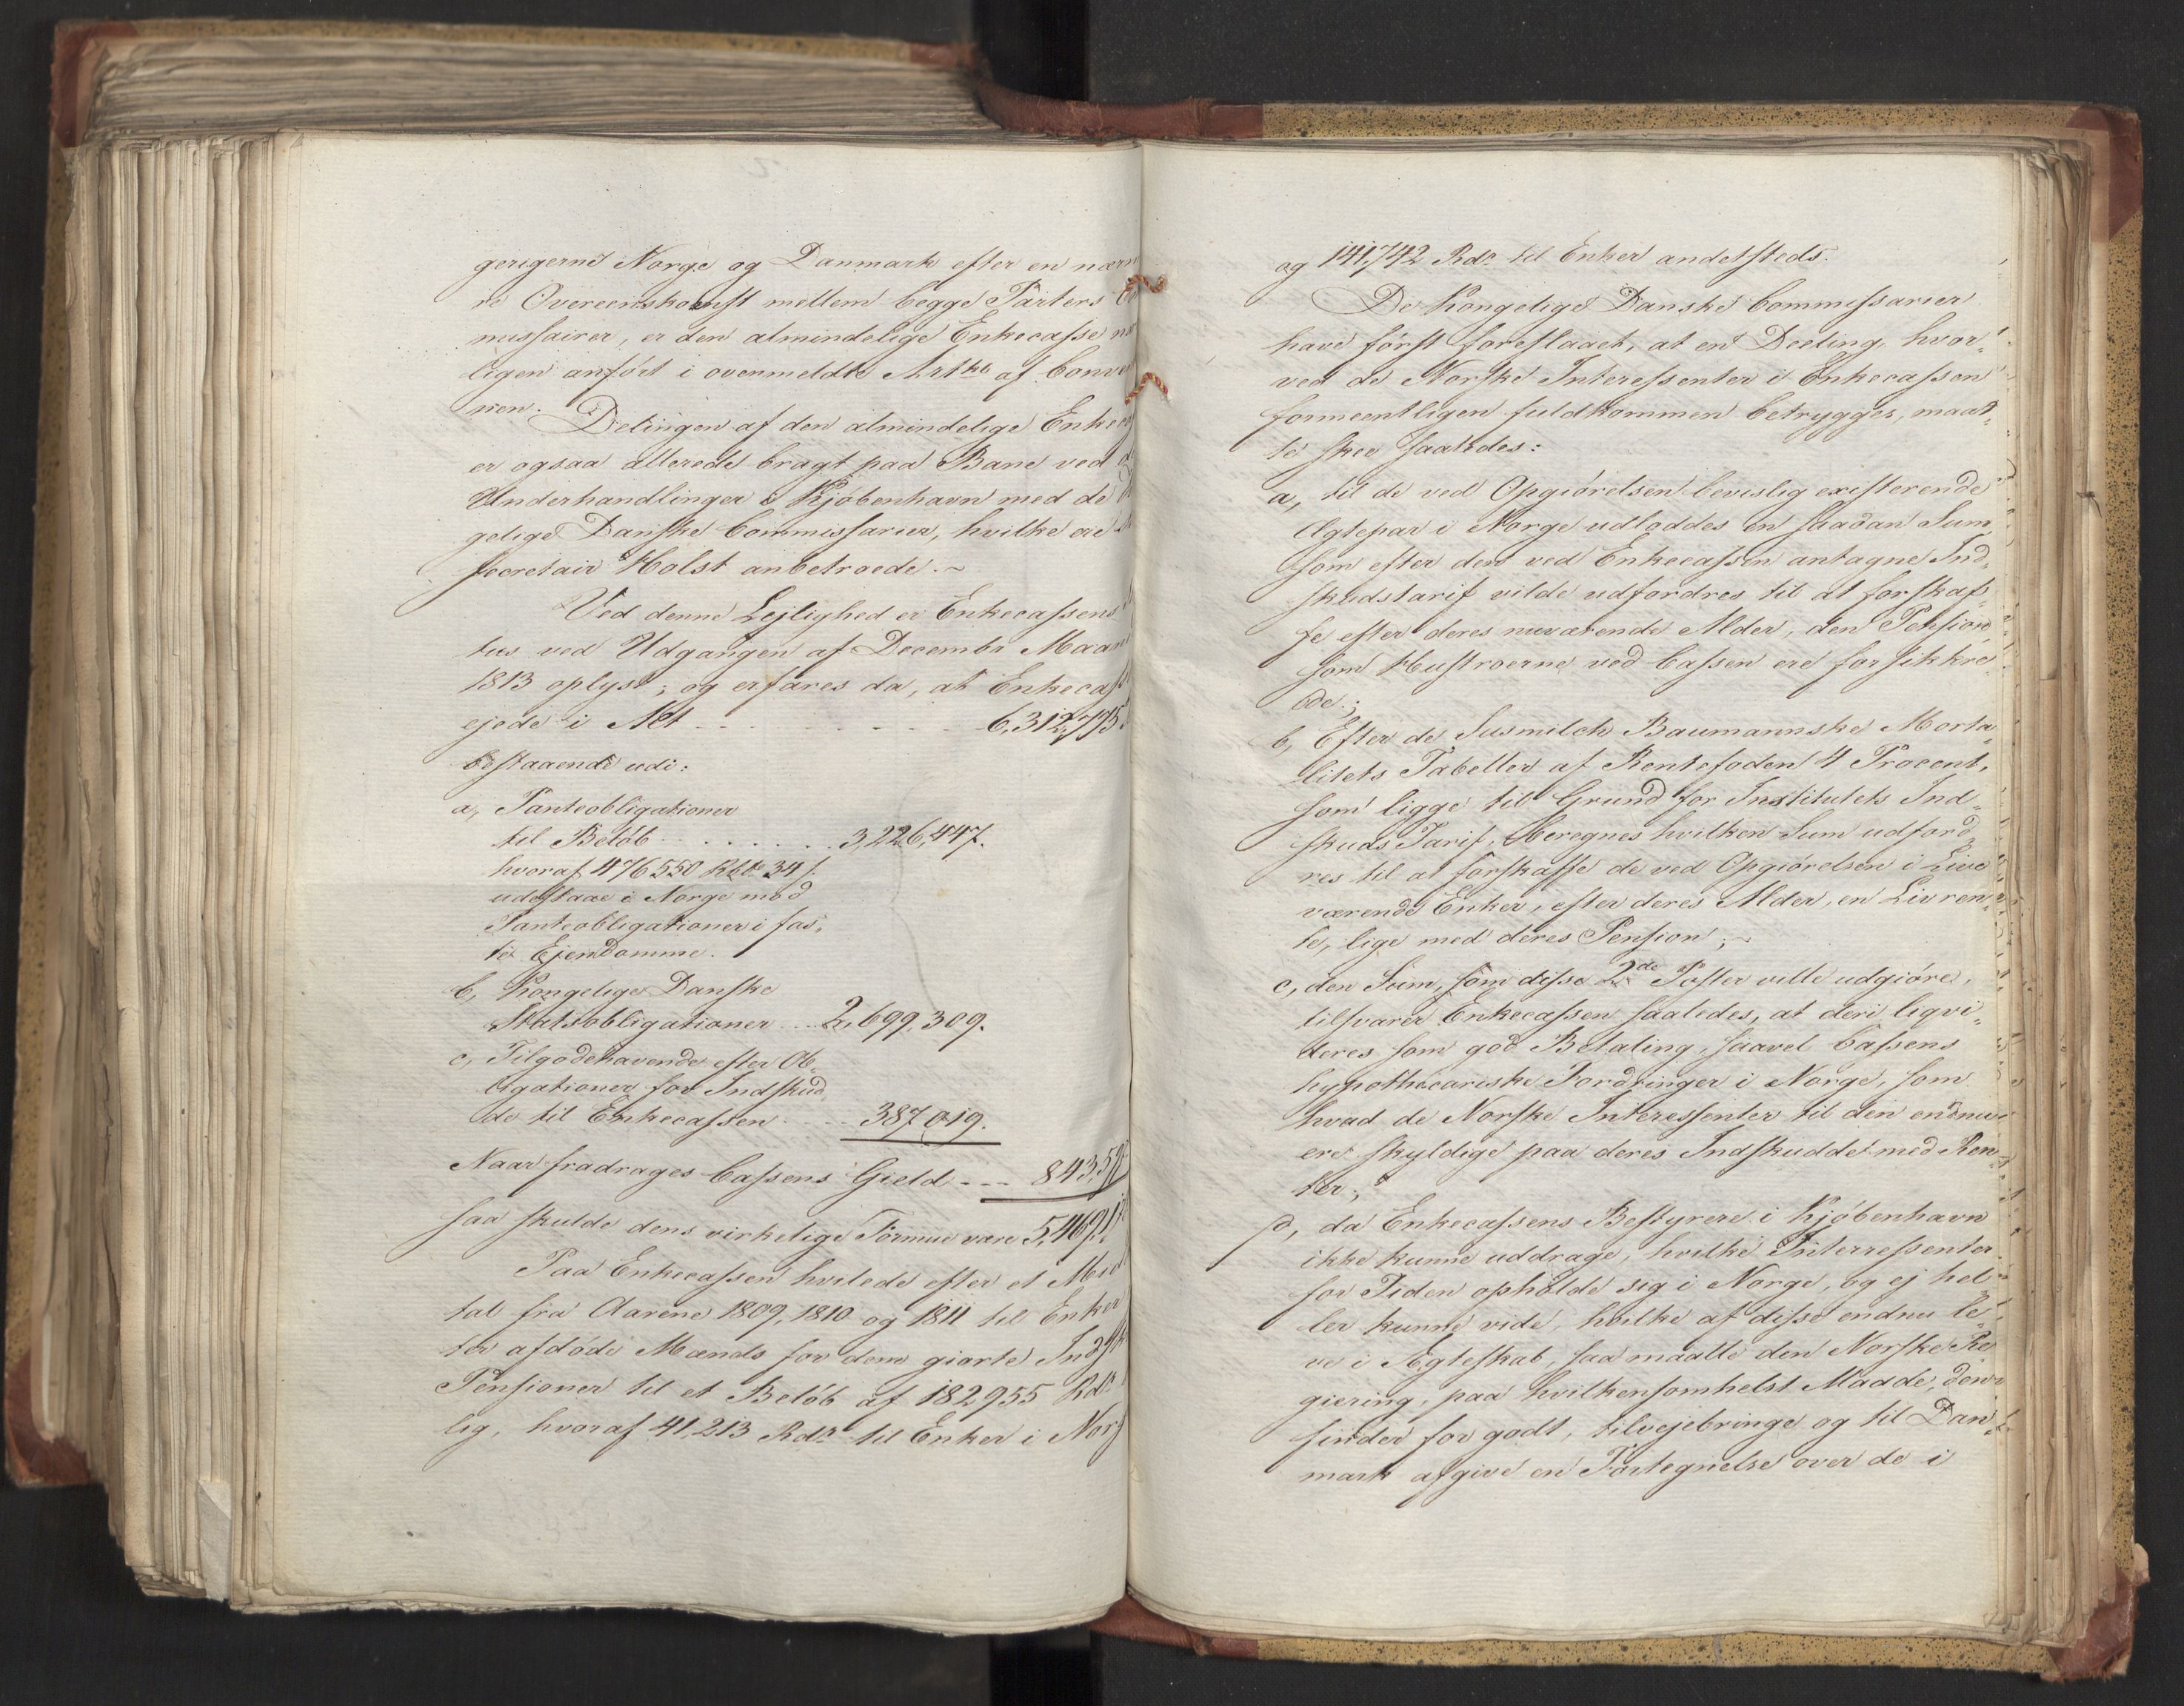 gerigerne Norge og Danmark efter en nærm
re Overeenskomst mellem begge Parters Co
missairer, er den almindelige Enkecasse næ
ligen anført i overmeldte Art 16 af Conven
nen.
Delingen af den almindelige Enkec
er ogsaa allerede bragt paa Bane ved d
Underhandlinger i Kjøbenhavn med de K
gelige Danske Commissarier, hvilke ere
Secretair Holst anbetroede.
Ved denne Lejlighed er Enkecassens
tus ved Udgangen af Decembr Maan
1813 oplyst; og erfares da, at Enkecass
ejede i Alt - - - - - - 6,312,775.
bestaaende udi:
a, Panteobligationer
til Beløb . . . . . . . . 3,226,447.
hvoraf 476550 Rbd 34 s.
udestaae i Norge mod
Panteobligationer i fas„
te Ejendomme.
b, Kongelige Danske
Statsobligationer . . . . 2,699,309.
c, Tilgodehavende efter Ob„
ligationer for Indskud„
de til Enkecassen . . . . 387,019.
Naar fradrages Cassens Gield - - - 843,5
saa skulde dens virkelige Formue være 5,469,1
Paa Enkecassen hvilede efter et Mid
tal fra Aarene 1809, 1810 og 1811 til Enker
ter afdøde Mænds for dem giorte Indsk
Pensioner til et Beløb af 182955 Rdr
lig, hvoraf 41,213 Rdr til Enker i Norg
og 141,742 Rdr til Enker andetsteds.
De Kongelige Danske Commissarier
have først foreslaaet, at en Deeling, hvor„
ved de Norske Interessenter i Enkecassen
formeentligen fuldkommen betrygges, maat„
te skee saaledes:
a, til de ved Opgiørelsen beviislig existerende
Ægtepar i Norge udloddes en saadan Sum
som efter den ved Enkecassen antagne Ind„
skudstarif vilde udfordres til at forskaf„
fe efter deres nuværende Alder, den Pension,
som Hustroerne ved Cassen ere forsikkre„
de.;
b, Efter de Susmilch Baumannske Morta„
litets Tabeller af Rentefoden 4 Procent,
som ligge til Grund for Institutets Ind„
skuds Tarif, beregnes hvilken Sum udford„
res til at forskaffe de ved Opgiørelsen i Live
værende Enker, efter deres Alder, en Livren„
te, lige med deres Pension;
c, den Sum, som disse 2de Poster ville udgiøre,
tilsvarer Enkecassen saaledes, at deri liqvi„
deres som god Betaling, saavel Cassens
hypothecariske Fordringer i Norge, som
hvad de Norske Interessenter til den endnu
ere skyldige paa deres Indskuddet med Ren„
ter.;
d, da Enkecassens Bestyrere i Kjøbenhavn
ikke kunne uddrage, hvilke Interressenter
for Tiden opholde sig i Norge, og ej hel„
ler kunne vide, hvilke af disse endnu le„
ve i Ægteskab, saa maatte den Norske Re„
giering, paa hvilkensomhelst Maade, den
finder for godt, tilvejebringe og til Dan„
mark afgive en Fortegnelse over de i